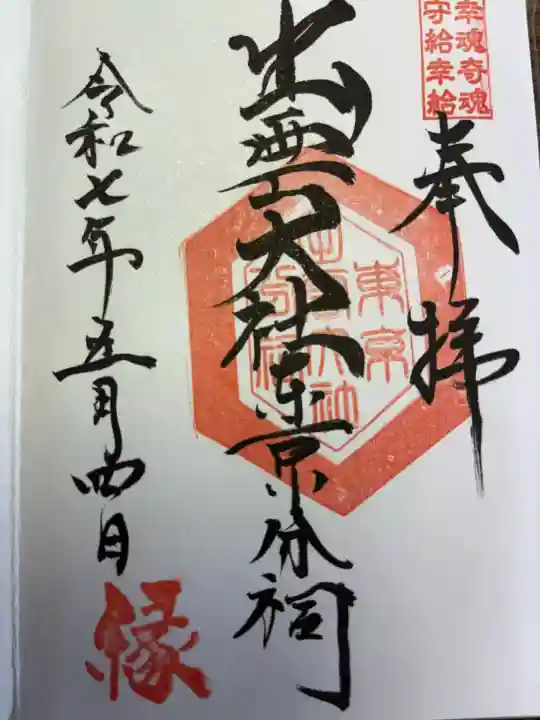 幸魂奇魂
守給幸給
奉拝
出雲大社東京分祠
東京
出雲大社
分祠
令和七年五月四日
縁